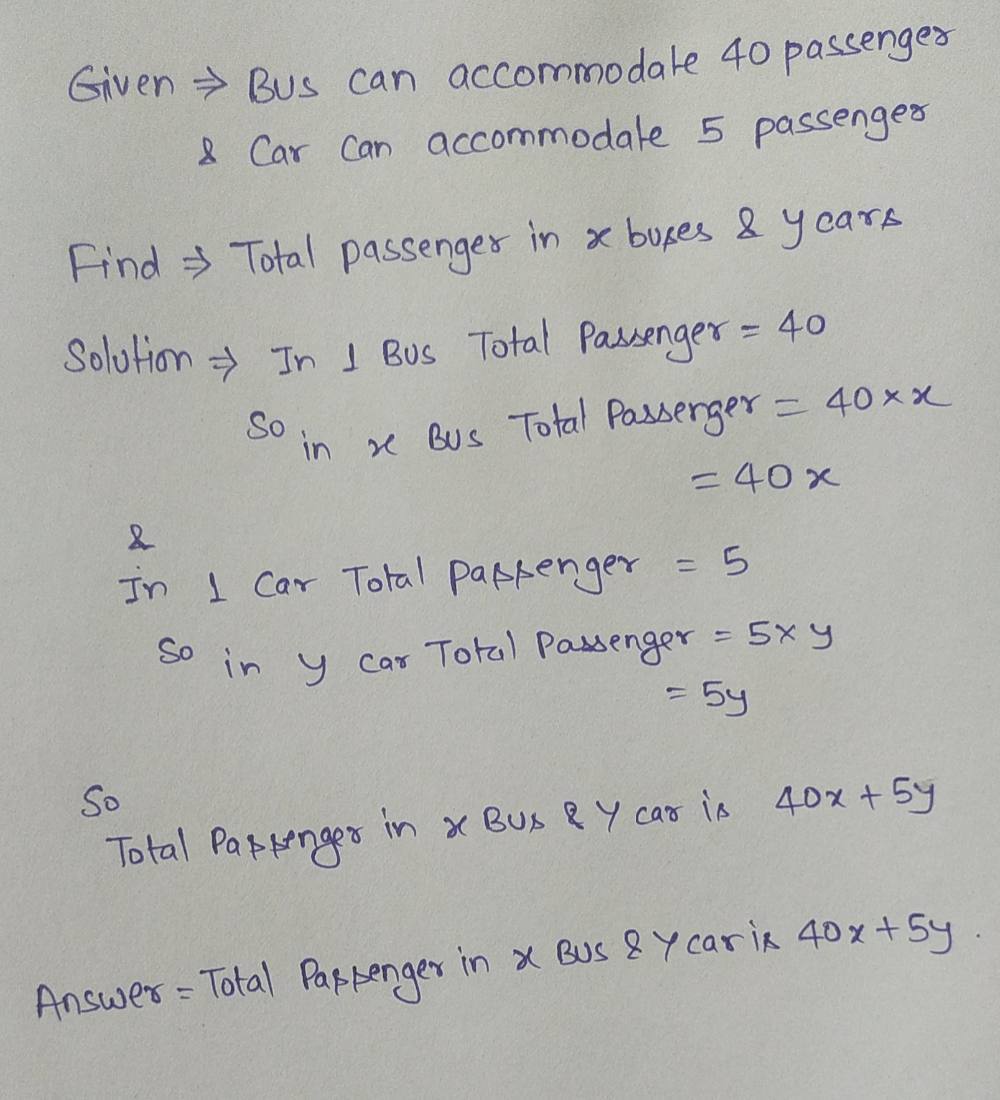 Given ⇒ Bus can accommodate 40 passenger
& Car can accommodate 5 passenger
Find ⇒ Total passenger in x buses & y cars
Solution ⇒ In 1 Bus Total Passenger = 40
So in x Bus Total Passenger = 40 × x
= 40x
&
In 1 Car Total passenger = 5
So in y car Total Passenger = 5 × y
= 5y
So
Total Passenger in x Bus & y car is 40x + 5y
Answer = Total Passenger in x Bus & y car is 40x + 5y .